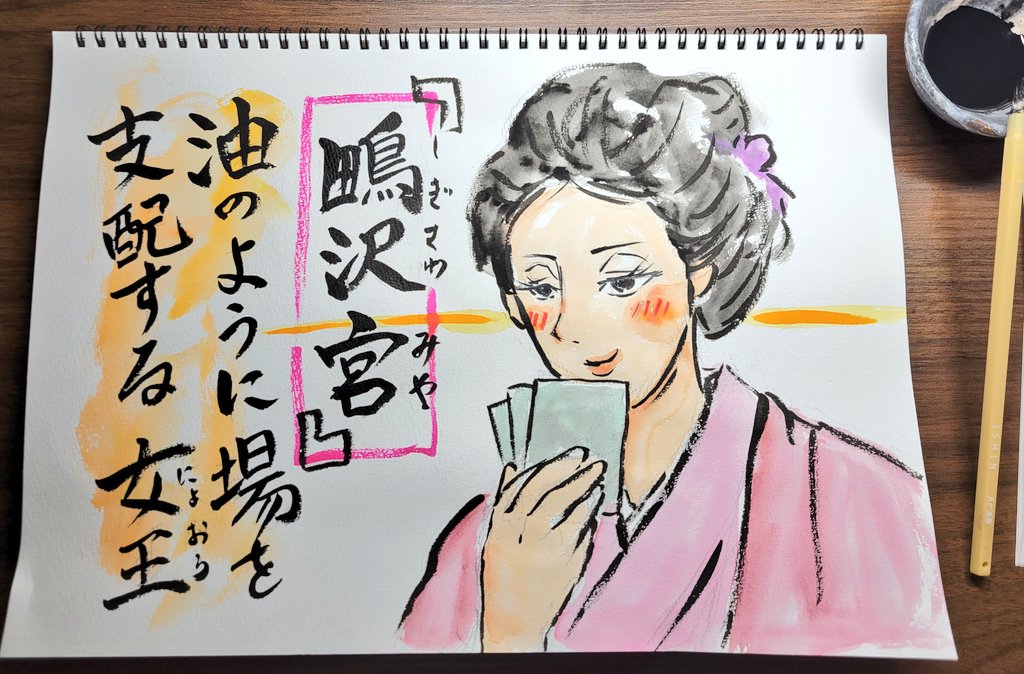 『鴫沢宮』
しぎさわ みや
油のように場を
支配する女王
にょおう